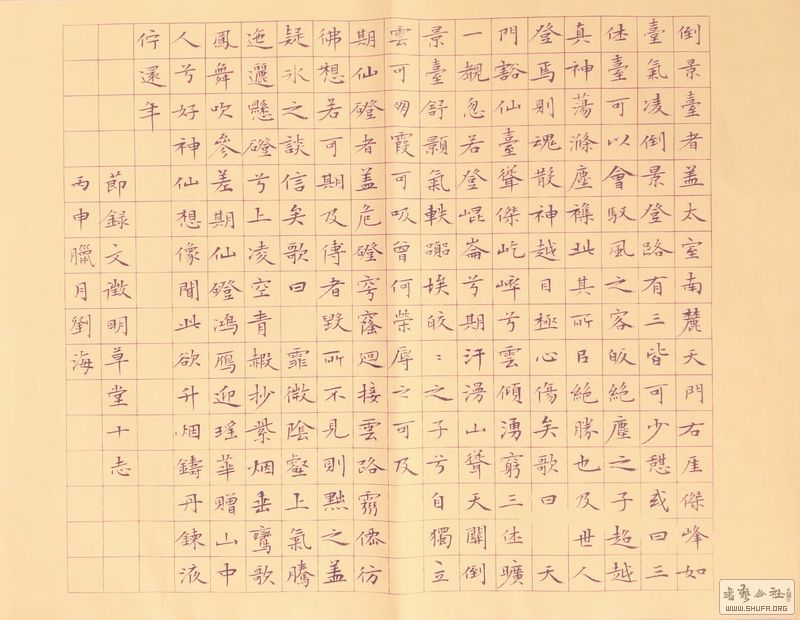 倒景臺者蓋太室南麓天門右厓傑峰如
臺氣凌倒景登路有三皆可少憩或曰三
休臺可以會馭風之客皈絶塵之子超越
真神蕩滌塵襟此其所㠯絶勝也及世人
登焉則魂散神越目極心傷矣歌曰 天
門豁仙臺聳傑屹崒兮雲傾湧窮三休曠
一覩忽若登崐崙兮期汗湧山聳天關倒
景臺舒顥氣軼囂埃皎〻之子兮自獨立
雲可朋霞可吸曾何榮辱之可及
期仙磴者蓋危磴穹窿迴接雲路霧僊彷
彿想若可期及傳者毀所不見則黜之蓋
疑氷之談信矣歌曰 霏微陰壑上氣騰
迤邐懸磴兮上凌空青赮抄紫烟垂鸞歌
鳳舞吹參差期仙磴鴻鴈迎瑤華贈山中
人兮好神仙想像聞此欲升烟鑄丹鍊液
佇還年
節録文徵明草堂十志
丙申臘月劉海
書藝公社
WWW.SHUFA.ORG